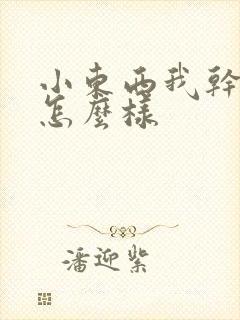 小東西我幹
怎麼樣
潘迎紫